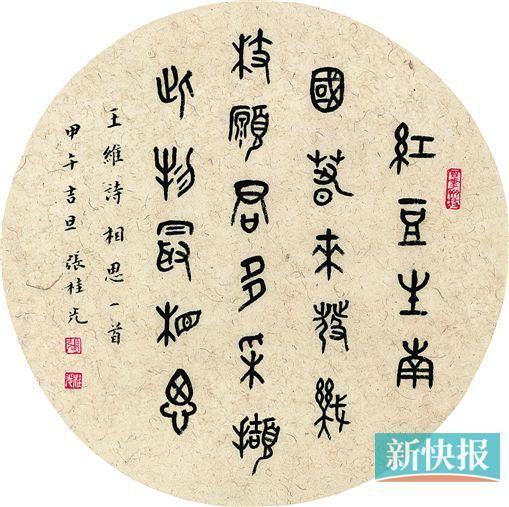 紅豆生南
國春來發幾
枝願君多采擷
此物最相思
王維詩相思一首
甲午吉旦 張桂光
新快报